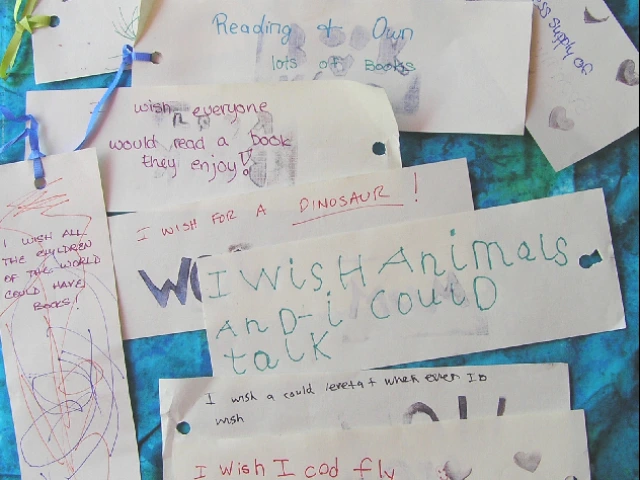 Reading & Own
lots of Books
ess supply of
wish everyone
would read a book
they enjoy!
I WISH FOR A DINOSAUR!
I WISH ALL
THE CHILDREN
OF THE WORLD
COULD HAVE
BOOKS!
WO
I WisH Animals
AnD-i COuiD
talK
I wish a could levetat when ever ID
wish
I wish I cod fly